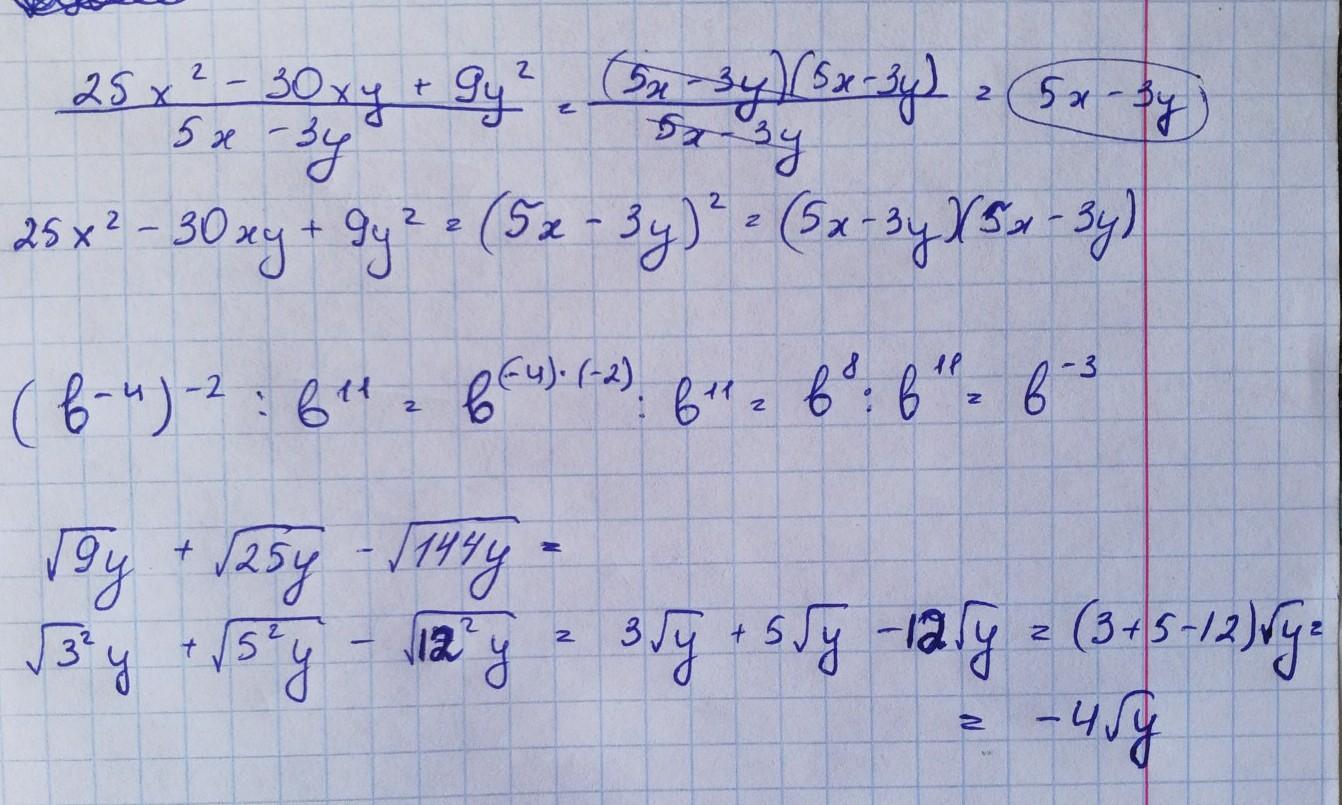 (25x² - 30xy + 9y²)/(5x - 3y) = (5x - 3y)(5x - 3y)/(5x - 3y) = 5x - 3y
25x² - 30xy + 9y² = (5x - 3y)² = (5x - 3y)(5x - 3y)
(в⁻⁴)⁻² : в¹¹ = в⁽⁻⁴⁾·⁽⁻²⁾ : в¹¹ = в⁸ : в¹¹ = в⁻³
√9y + √25y - √144y =
√3²y + √5²y - √12²y = 3√y + 5√y - 12√y = (3+5-12)√y =
= -4√y